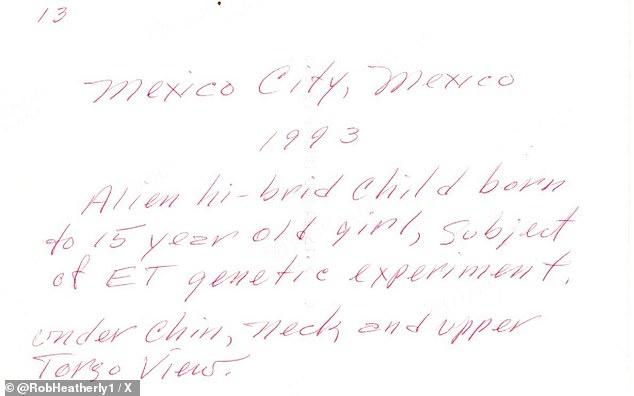 13
Mexico City, Mexico
1993
Alien hi-brid child born
to 15 year old girl, subject
of ET genetic experiment.
under chin, neck and upper
Torzo View.
© @RobHeatherly1 / X